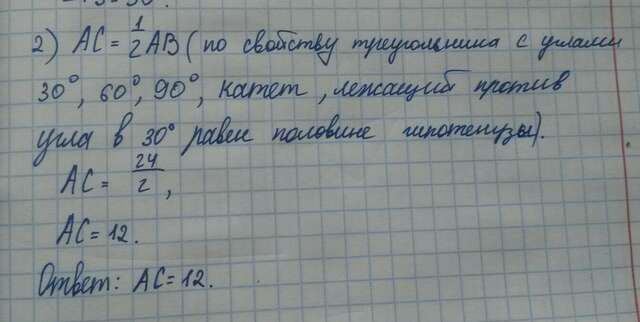 2) AC = 1/2 AB (по свойству треугольника с углами
30°, 60°, 90°, катет, лежащий против
угла в 30° равен половине гипотенузы).
AC = 24/2,
AC = 12.
Ответ: AC = 12.